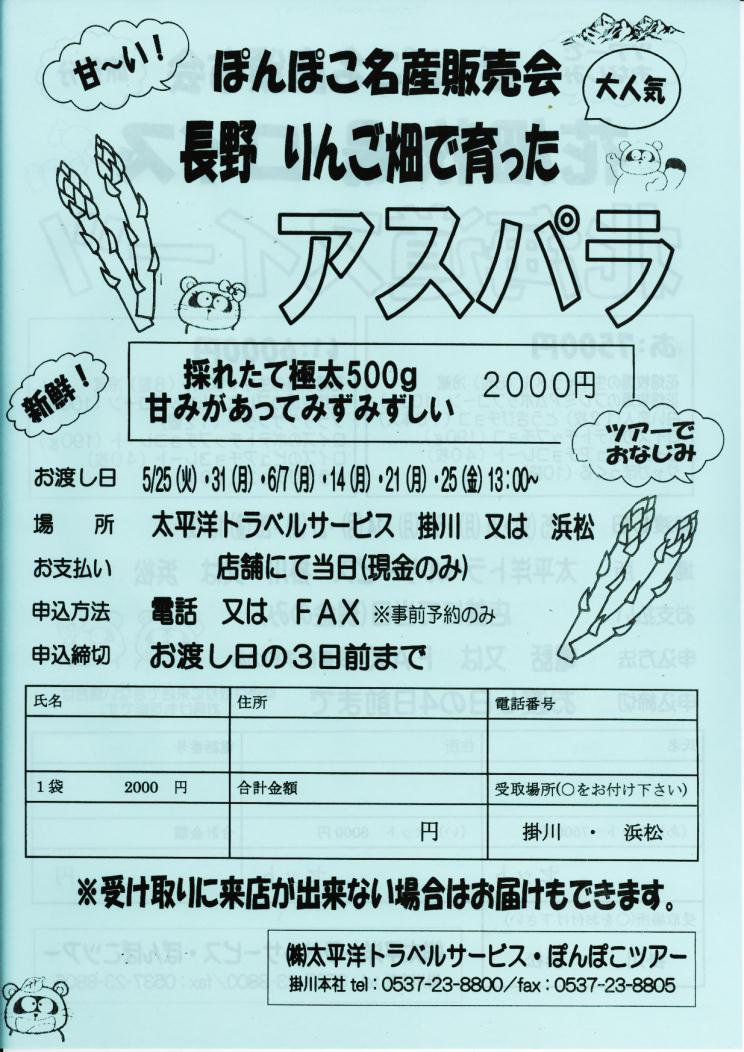 甘〜い！
ぽんぽこ名産販売会
大人気
長野 りんご畑で育った
アスパラ
新鮮！
採れたて極太500g
甘みがあってみずみずしい
2000円
ツアーで
おなじみ
お渡し日 5/25(火)・31(月)・6/7(月)・14(月)・21(月)・25(金)13:00~
場　所 太平洋トラベルサービス 掛川 又は 浜松
お支払い 店舗にて当日(現金のみ)
申込方法 電話 又は FAX ※事前予約のみ
申込締切 お渡し日の３日前まで
氏名 住所 電話番号
１袋 2000 円 合計金額 受取場所(○をお付け下さい)
円 掛川 ・ 浜松
※受け取りに来店が出来ない場合はお届けもできます。
㈱太平洋トラベルサービス・ぽんぽこツアー
掛川本社 tel：0537-23-8800／fax：0537-23-8805